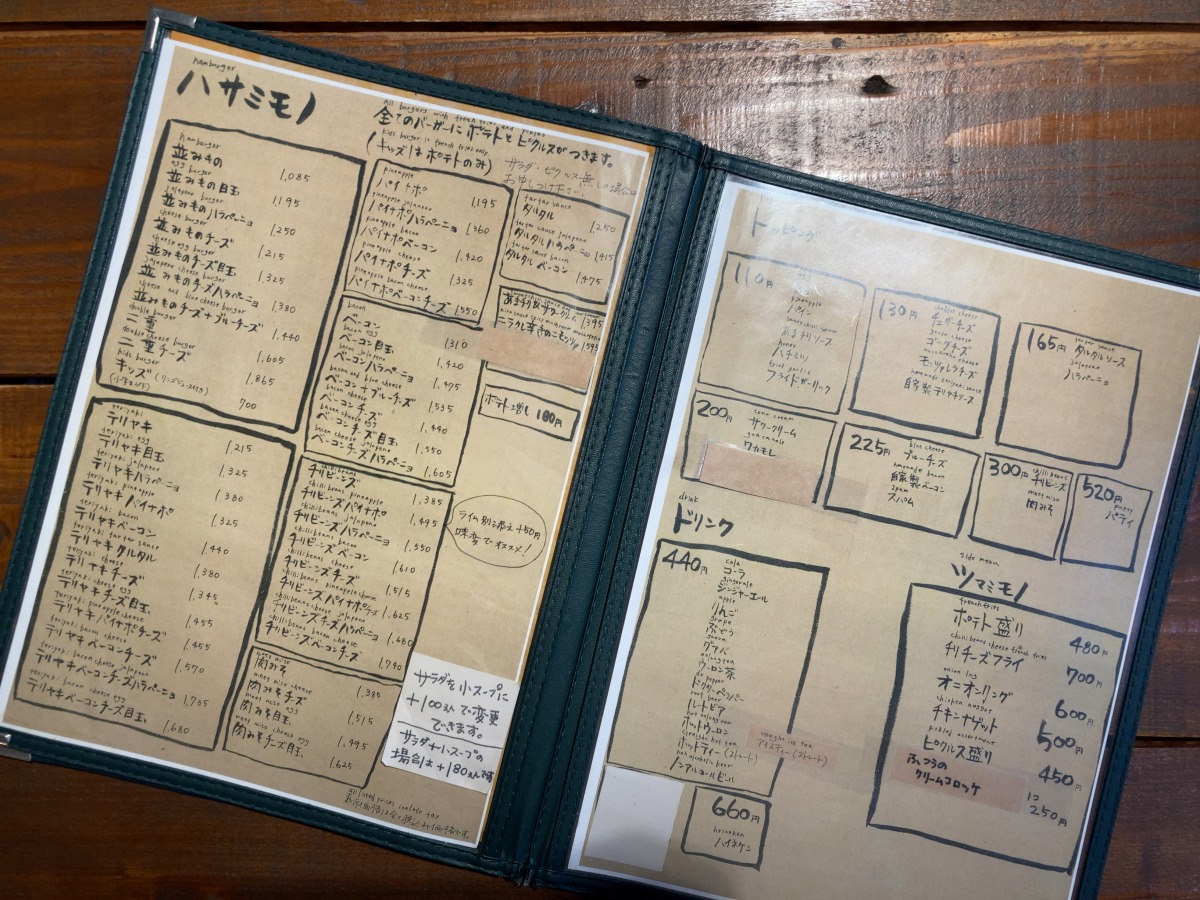 hamburger
ハサミモノ
all burgers with french fries and pickles
全てのバーガーにポテトとピクルスがつきます。
kids burger is french fries only
(キッズはポテトのみ)
hamburger
並みもの 1,085
egg burger
並みもの目玉 1,195
jalapeno burger
並みものハラペーニョ 1,250
cheese burger
並みものチーズ 1,215
cheese egg burger
並みものチーズ目玉 1,325
jalapeno cheese burger
並みものチーズハラペーニョ 1,380
cheese and blue cheese burger
並みものチーズ+ブルーチーズ 1,440
double burger
二重 1,605
double cheese burger
二重チーズ 1,865
kids burger
キッズ 700
teriyaki
テリヤキ 1,215
teriyaki egg
テリヤキ目玉 1,325
teriyaki jalapeno
テリヤキハラペーニョ 1,380
teriyaki pineapple
テリヤキパイナポ 1,325
teriyaki bacon
テリヤキベーコン 1,440
teriyaki tartar sauce
テリヤキタルタル 1,380
teriyaki cheese
テリヤキチーズ 1,345
teriyaki cheese egg
テリヤキチーズ目玉 1,455
teriyaki pineapple cheese
テリヤキパイナポチーズ 1,455
teriyaki bacon cheese
テリヤキベーコンチーズ 1,570
teriyaki bacon cheese jalapeno
テリヤキベーコンチーズハラペーニョ 1,735
teriyaki bacon cheese egg
テリヤキベーコンチーズ目玉 1,680
pineapple
パイナポ 1,195
pineapple jalapeno
パイナポハラペーニョ 1,360
pineapple bacon
パイナポベーコン 1,420
pineapple cheese
パイナポチーズ 1,325
pineapple bacon cheese
パイナポベーコンチーズ 1,550
bacon
ベーコン 1,310
bacon egg
ベーコン目玉 1,420
bacon jalapeno
ベーコンハラペーニョ 1,475
bacon and blue cheese
ベーコン+ブルーチーズ 1,535
bacon cheese
ベーコンチーズ 1,440
bacon cheese egg
ベーコンチーズ目玉 1,550
bacon cheese jalapeno
ベーコンチーズハラペーニョ 1,605
chili beans
チリビーンズ 1,385
chili beans pineapple
チリビーンズパイナポ 1,495
chili beans jalapeno
チリビーンズハラペーニョ 1,550
chili beans bacon
チリビーンズベーコン 1,610
chili beans cheese
チリビーンズチーズ 1,515
chili beans pineapple cheese
チリビーンズパイナポチーズ 1,625
chili beans cheese jalapeno
チリビーンズチーズハラペーニョ 1,680
chili beans bacon cheese
チリビーンズベーコンチーズ 1,740
meet miso
肉みそ 1,385
meet miso cheese
肉みそチーズ 1,515
meet miso egg
肉みそ目玉 1,495
meet miso cheese egg
肉みそチーズ目玉 1,625
tartar sauce
タルタル 1,250
tartar sauce jalapeno
タルタルハラペーニョ 1,415
tartar sauce bacon
タルタルベーコン 1,475
ポテト増し 180円
ライム別添え +50円
味変でオススメ!
サラダを小スープに
+100えんで変更
できます。
サラダ+小スープの
場合は+180えんです
all listed prices include tax
トッピング
110円
pineapple
パイン
sweet chili sauce
あまチリソース
honey
ハチミツ
fried garlic
フライドガーリック
130円
cheddar cheese
チェダーチーズ
gouda cheese
ゴーダチーズ
mozzarella cheese
モッツァレラチーズ
homemade teriyaki sauce
自家製テリヤキソース
165円
tartar sauce
タルタルソース
jalapeno
ハラペーニョ
200円
sour cream
サワークリーム
guacamole
ワカモレ
225円
blue cheese
ブルーチーズ
homemade bacon
自家製ベーコン
spam
スパム
300円
chili beans
チリビーンズ
meet miso
肉みそ
520円
patty
パティ
drink
ドリンク
440円
cola
コーラ
gingerale
ジンジャーエール
apple
りんご
grape
ぶどう
guava
グァバ
oolong tea
ウーロン茶
dr pepper
ドクターペッパー
root beer
ルートビア
hot oolong tea
ホットウーロン
straight hot tea
ホットティー(ストレート)
straight ice tea
アイスティー(ストレート)
non alcoholic beer
ノンアルコールビール
660円
heineken
ハイネケン
side menu
ツマミモノ
french fries
ポテト盛り 480円
chili beans cheese french fries
チリチーズフライ 700円
onion ring
オニオンリング 600円
chicken nugget
チキンナゲット 500円
pickles assortment
ピクルス盛り 450円
ふつうの
クリームコロッケ 1コ 250円